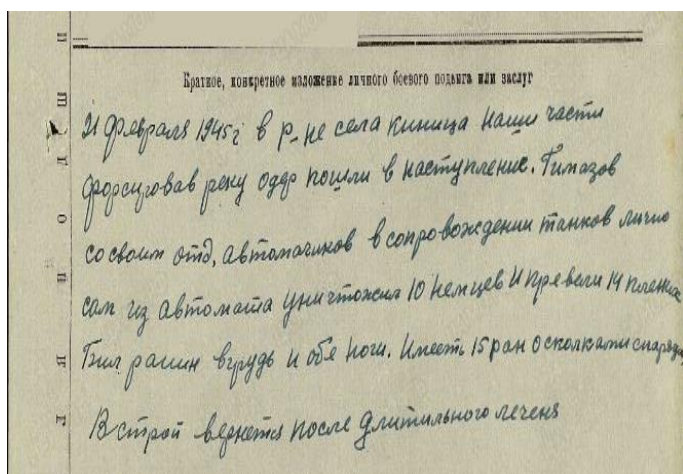 Краткое, конкретное изложение личного боевого подвига или заслуг
21 февраля 1945г в р-не села киница наши части
форсировав реку одер пошли в наступление. Гимазов
со своим отд, автоматчиков в сопровождении танков лично
сам из автомата уничтожил 10 немцев и превели 14 пленных
Бил ранин вгрудь и обе ноги. Имеет 15 ран осколками снаряда,
В строй вернется после длительного лечения